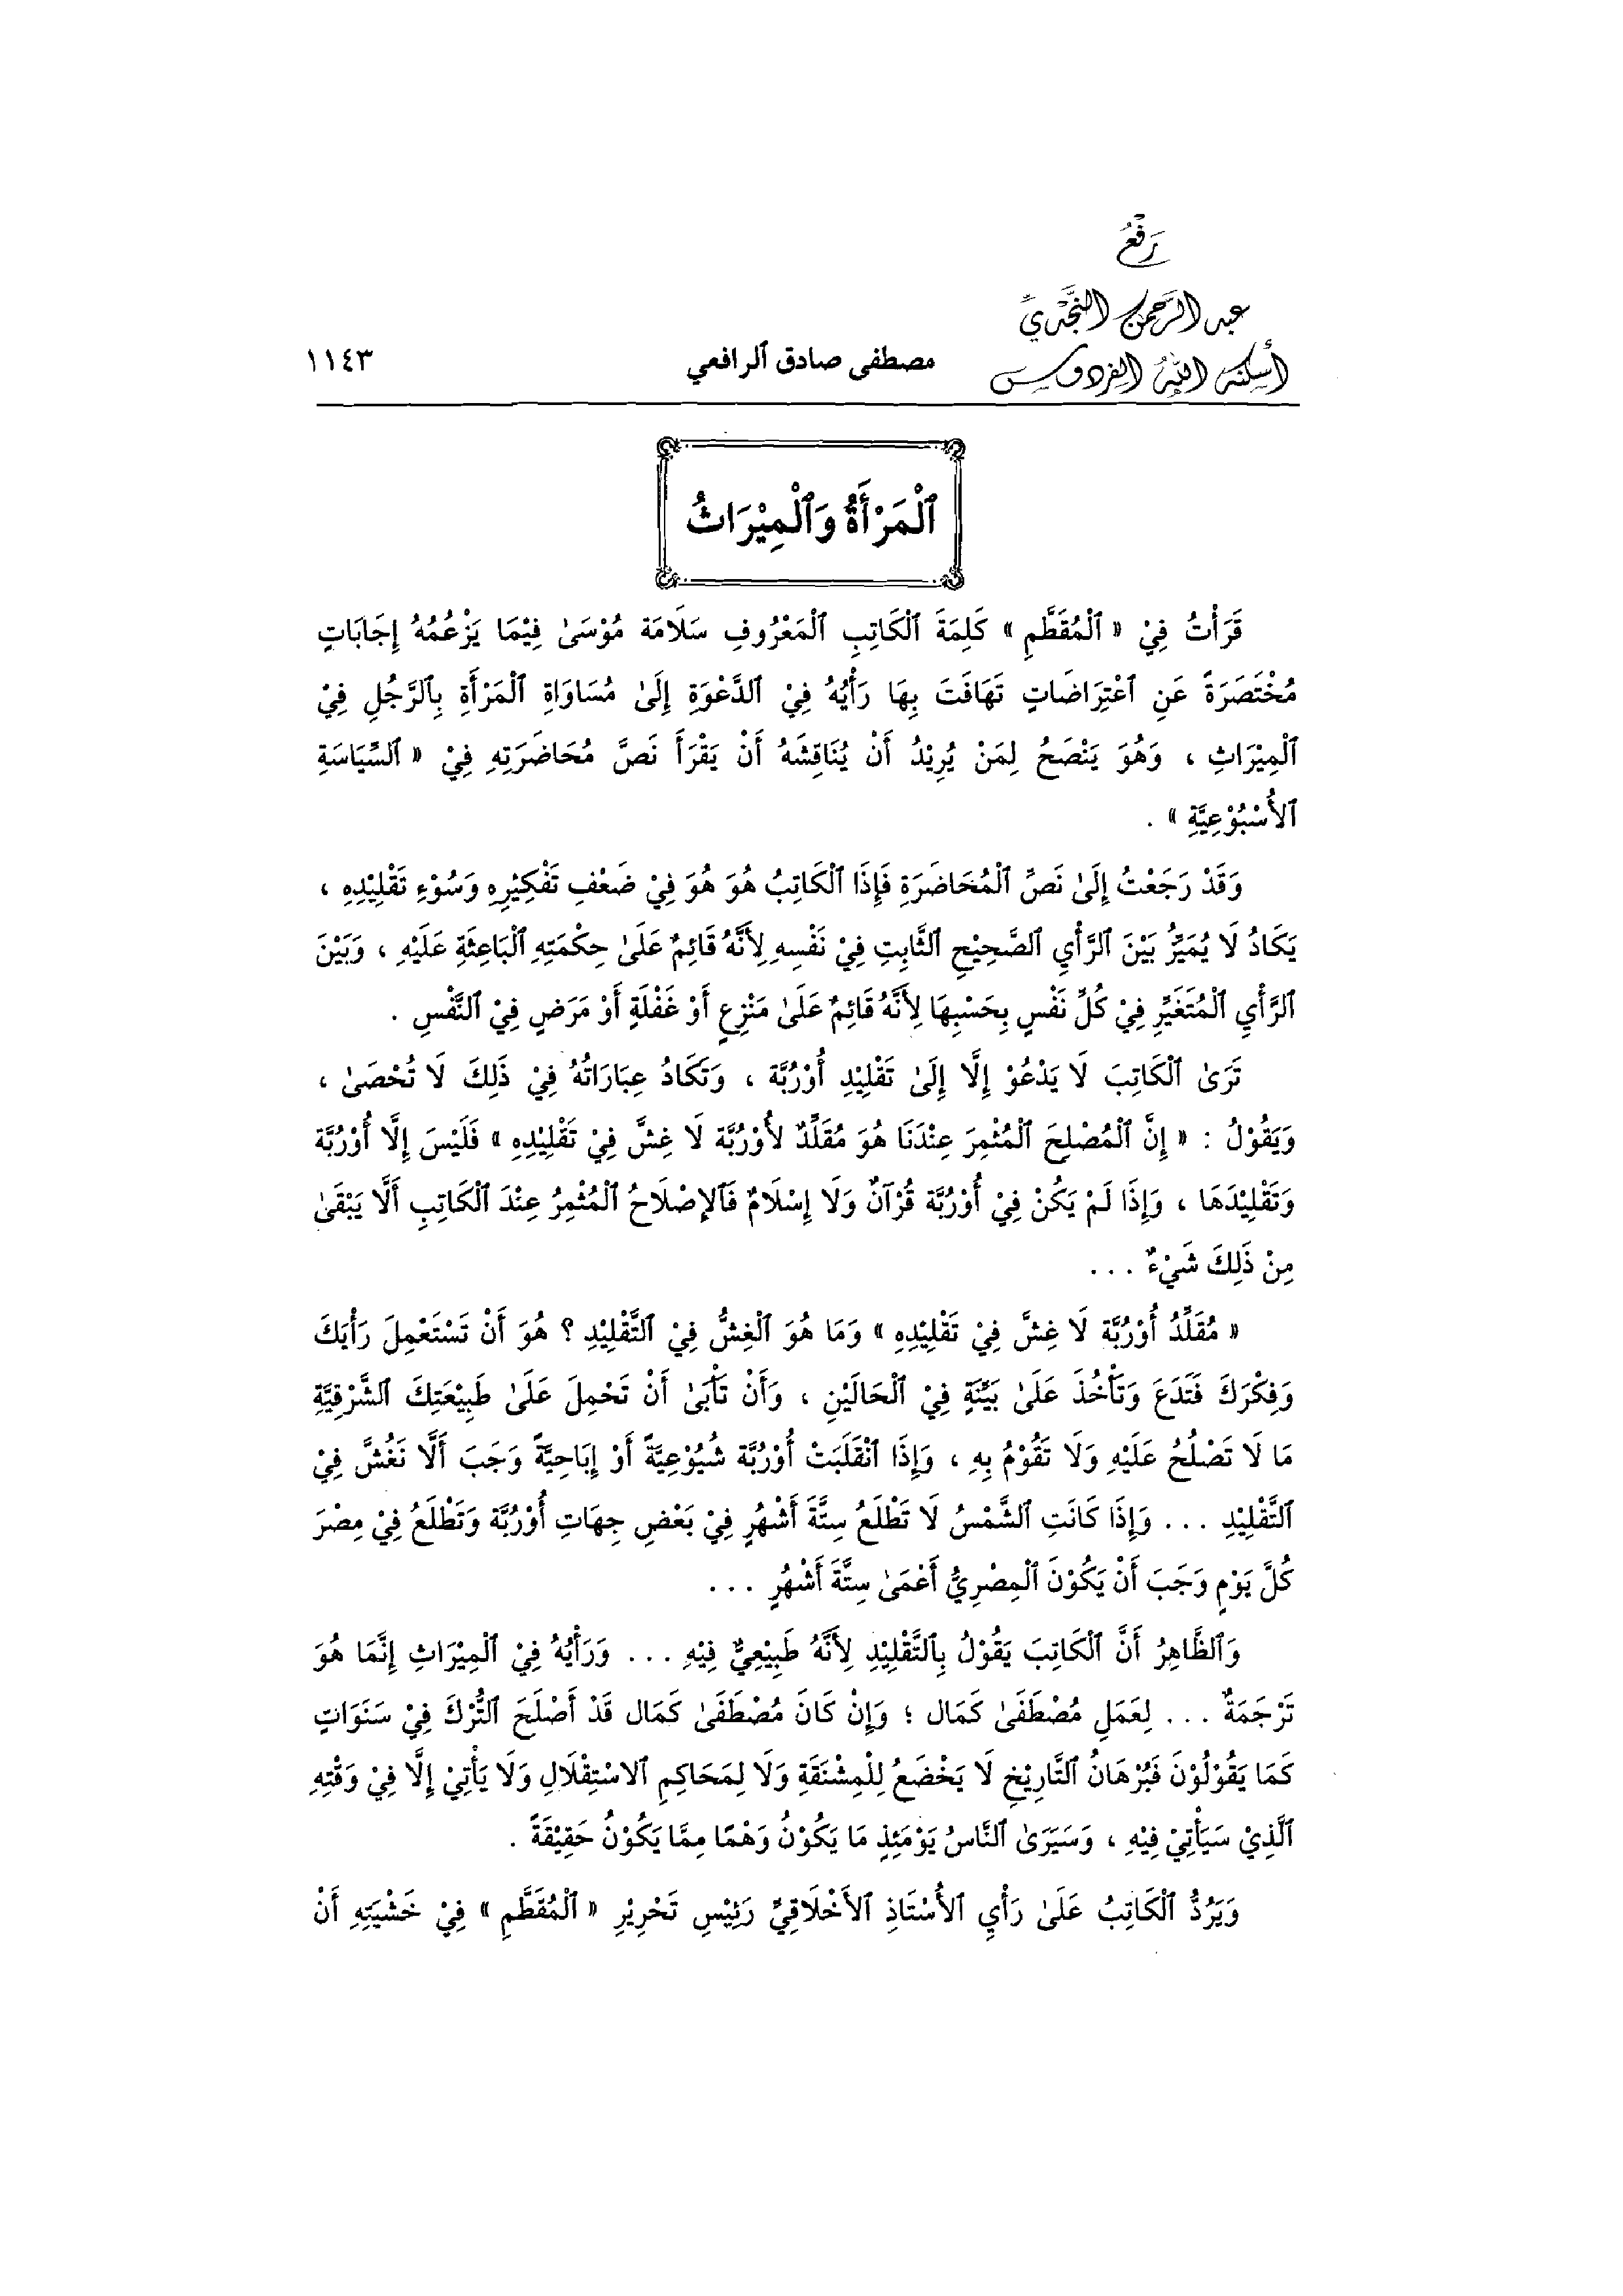 رَفْعُ
عبد الرَّحمن النَّجْدِيِّ
أسكنه الله الفردوس
مصطفى صادق ٱلرافعي
١١٤٣
ٱلْمَرْأَةُ وَٱلْمِيْرَاثُ
قَرَأْتُ فِيْ « ٱلْمُقَطَّمِ » كَلِمَةَ ٱلْكَاتِبِ ٱلْمَعْرُوفِ سَلَامَة مُوْسَىٰ فِيْمَا يَزْعُمُهُ إِجَابَاتٍ
مُخْتَصَرَةً عَنِ ٱعْتِرَاضَاتٍ تَهَافَتَ بِهَا رَأْيُهُ فِيْ ٱلدَّعْوَةِ إِلَىٰ مُسَاوَاةِ ٱلْمَرْأَةِ بِٱلرَّجُلِ فِيْ
ٱلْمِيْرَاثِ ، وَهُوَ يَنْصَحُ لِمَنْ يُرِيْدُ أَنْ يُنَاقِشَهُ أَنْ يَقْرَأَ نَصَّ مُحَاضَرَتِهِ فِيْ « ٱلسِّيَاسَةِ
ٱلأُسْبُوْعِيَّةِ » .
وَقَدْ رَجَعْتُ إِلَىٰ نَصِّ ٱلْمُحَاضَرَةِ فَإِذَا ٱلْكَاتِبُ هُوَ هُوَ فِيْ ضَعْفِ تَفْكِيْرِهِ وَسُوْءِ تَقْلِيْدِهِ ،
يَكَادُ لَا يُمَيِّزُ بَيْنَ ٱلرَّأْيِ ٱلصَّحِيْحِ ٱلثَّابِتِ فِيْ نَفْسِهِ لِأَنَّهُ قَائِمٌ عَلَىٰ حِكْمَتِهِ ٱلْبَاعِثَةِ عَلَيْهِ ، وَبَيْنَ
ٱلرَّأْيِ ٱلْمُتَغَيِّرِ فِيْ كُلِّ نَفْسٍ بِحَسْبِهَا لِأَنَّهُ قَائِمٌ عَلَىٰ مَنْزِعٍ أَوْ غَفْلَةٍ أَوْ مَرَضٍ فِيْ ٱلنَّفْسِ .
تَرَىٰ ٱلْكَاتِبَ لَا يَدْعُوْ إِلَّا إِلَىٰ تَقْلِيْدِ أُوْرُبَّة ، وَتَكَادُ عِبَارَاتُهُ فِيْ ذَلِكَ لَا تُحْصَىٰ ،
وَيَقُوْلُ : « إِنَّ ٱلْمُصْلِحَ ٱلْمُثْمِرَ عِنْدَنَا هُوَ مُقَلِّدٌ لأُوْرُبَّة لَا غِشَّ فِيْ تَقْلِيْدِهِ » فَلَيْسَ إِلَّا أُوْرُبَّة
وَتَقْلِيْدَهَا ، وَإِذَا لَمْ يَكُنْ فِيْ أُوْرُبَّة قُرْآنٌ وَلَا إِسْلَامٌ فَٱلإِصْلَاحُ ٱلْمُثْمِرُ عِنْدَ ٱلْكَاتِبِ أَلَّا يَبْقَىٰ
مِنْ ذَلِكَ شَيْءٌ . . .
« مُقَلِّدُ أُوْرُبَّة لَا غِشَّ فِيْ تَقْلِيْدِهِ » وَمَا هُوَ ٱلْغِشُّ فِيْ ٱلتَّقْلِيْدِ ؟ هُوَ أَنْ تَسْتَعْمِلَ رَأْيَكَ
وَفِكْرَكَ فَتَدَعَ وَتَأْخُذَ عَلَىٰ بَيِّنَةٍ فِيْ ٱلْحَالَيْنِ ، وَأَنْ تَأْبَىٰ أَنْ تَحْمِلَ عَلَىٰ طَبِيْعَتِكَ ٱلشَّرْقِيَّةِ
مَا لَا تَصْلُحُ عَلَيْهِ وَلَا تَقُوْمُ بِهِ ، وَإِذَا ٱنْقَلَبَتْ أُوْرُبَّة شُيُوْعِيَّةً أَوْ إِبَاحِيَّةً وَجَبَ أَلَّا نَغُشَّ فِيْ
ٱلتَّقْلِيْدِ . . . وَإِذَا كَانَتِ ٱلشَّمْسُ لَا تَطْلَعُ سِتَّةَ أَشْهُرٍ فِيْ بَعْضِ جِهَاتِ أُوْرُبَّة وَتَطْلَعُ فِيْ مِصْرَ
كُلَّ يَوْمٍ وَجَبَ أَنْ يَكُوْنَ ٱلْمِصْرِيُّ أَعْمَىٰ سِتَّةَ أَشْهُرٍ . . .
وَٱلظَّاهِرُ أَنَّ ٱلْكَاتِبَ يَقُوْلُ بِٱلتَّقْلِيْدِ لِأَنَّهُ طَبِيْعِيٌّ فِيْهِ . . . وَرَأْيُهُ فِيْ ٱلْمِيْرَاثِ إِنَّمَا هُوَ
تَرْجَمَةٌ . . . لِعَمَلِ مُصْطَفَىٰ كَمَال ؛ وَإِنْ كَانَ مُصْطَفَىٰ كَمَال قَدْ أَصْلَحَ ٱلتُّرْكَ فِيْ سَنَوَاتٍ
كَمَا يَقُوْلُوْنَ فَبُرْهَانُ ٱلتَّارِيْخِ لَا يَخْضَعُ لِلْمِشْنَقَةِ وَلَا لِمَحَاكِمِ ٱلاسْتِقْلَالِ وَلَا يَأْتِيْ إِلَّا فِيْ وَقْتِهِ
ٱلَّذِيْ سَيَأْتِيْ فِيْهِ ، وَسَيَرَىٰ ٱلنَّاسُ يَوْمَئِذٍ مَا يَكُوْنُ وَهْمًا مِمَّا يَكُوْنُ حَقِيْقَةً .
وَيَرُدُّ ٱلْكَاتِبُ عَلَىٰ رَأْيِ ٱلأُسْتَاذِ ٱلأَخْلَاقِيِّ رَئِيْسِ تَحْرِيْرِ « ٱلْمُقَطَّمِ » فِيْ خَشْيَتِهِ أَنْ